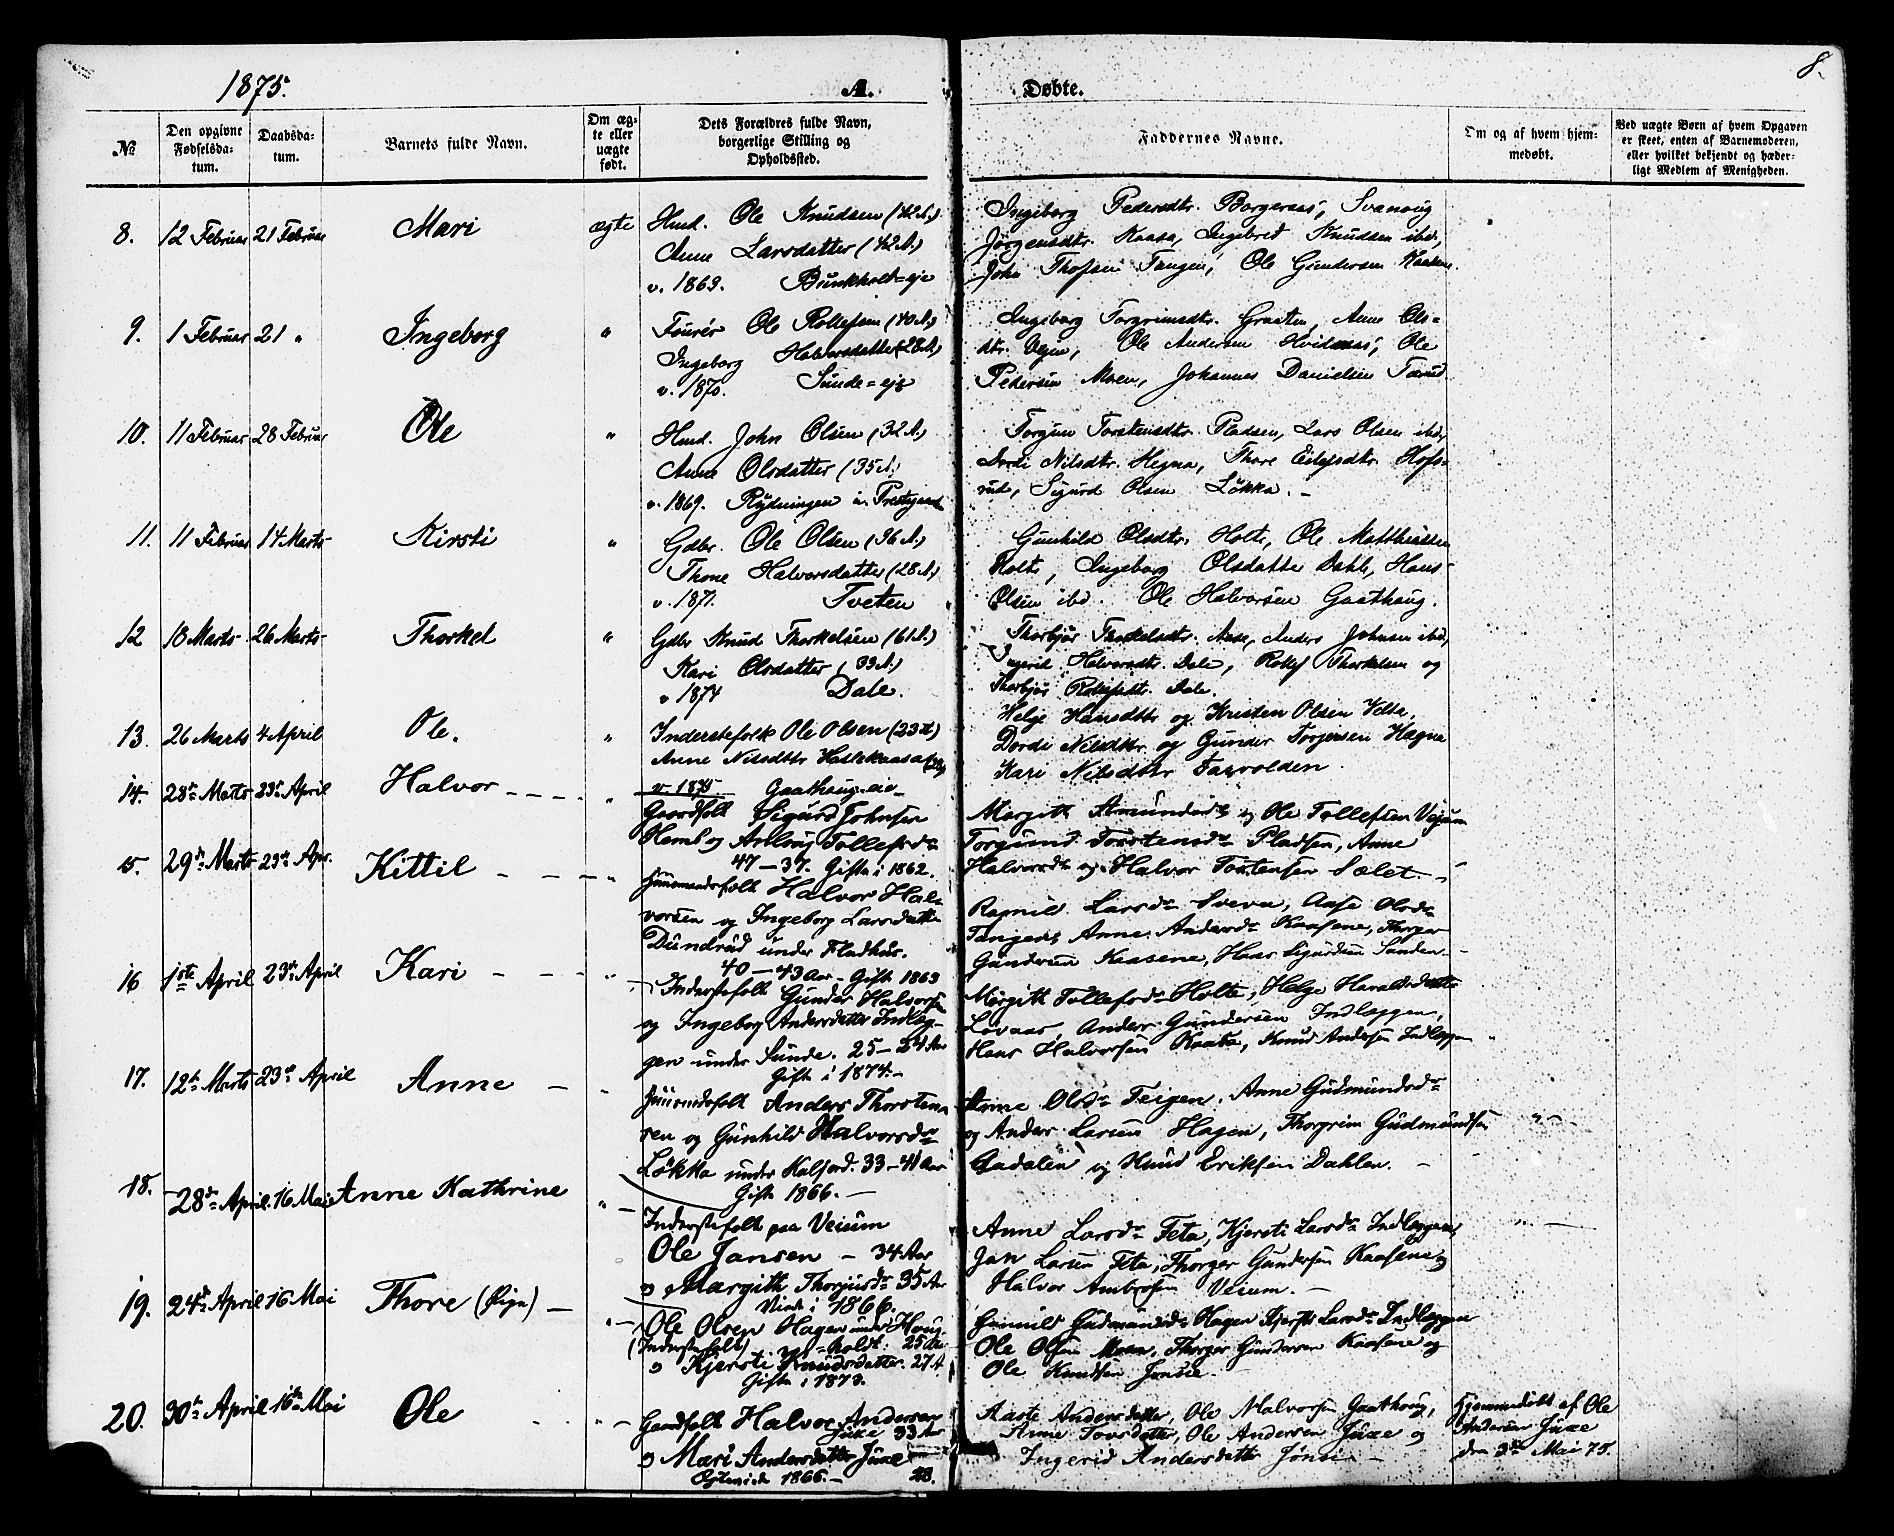 1875.
A.
Døbte.
8.
№
Den opgivne Fødselsdatum.
Daabsdatum.
Barnets fulde Navn.
Om ægte eller uægte født.
Dets Forældres fulde Navn, borgerlige Stilling og Opholdsted.
Faddernes Navne.
Om og af hvem hjemmedøbt.
Ved uægte Børn af hvem Opgaven er skeet, enten af Barnemoderen, eller hvilket bekjendt og hæderligt Medlem af Menigheden.
8. 12 Februar 21 Februar Mari ægte
Hmd. Ole Knudsen (42 A.)
Anne Larsdatter (42 A.)
v. 1863. Bunkholt=eje
Ingeborg Pedersdtr. Borgersaas, Svanoug
Jörgensdtr. Kaasa, Ingebret Knudsen ibd.,
John Thofsen Tangen, Ole Gundersen Kaasene
9. 1 Februar 21 " Ingeborg "
Ole Rollefsen (40 A.)
Ingeborg Halvorsdatter (28 A.)
v. 1870. Sunde=eje
Ingeborg Torgrimsdtr. Graaten, Anne Ols=
dtr. Ole Andersen Hvidesaas, Ole
Pedersen Moen, Johannes Danielsen
10. 11 Februar 28 Februar Ole "
Hmd. John Olsen (32 A.)
Anne Olsdatter (35 A.)
v. 1869. Rydningen u. Prestegaard
Torgun Torstensdtr. Pladsen, Lars Olsen ibd,
Dordi Nilsdtr. Hegna, Thore Eilefsdtr. Hofs=
rud, Sigurd Olsen Løkka. -
11. 11 Februar 14 Marts Kirsti "
Gdbr. Ole Olsen (36 A.)
Thone Halvorsdatter (28 A.)
v. 1871. Tveten
Gunhild Olsdtr. Holte, Ole Matthiasen
Holte, Ingeborg Olsdatter Dahle, Hans
Olsen ibd. Ole Halvorsen Gaathaug.
12 10 Marts 26 Marts Thorkel "
Gdbr Knud Thorkelsen (61 A.)
Kari Olsdatter (33 A.)
v 1874 Dale.
Thorbjør Thorkelsdtr. Aase, Anders Johnsen ibd,
Ingerid Halvorsdtr. Dale, Rollef Thorkelsen og
Thorbjør Rollefsdtr. Dale.
13. 26 Marts 4 April Ole. "
Inderstefolk Ole Olsen (23 A)
Anne Nilsdtr Holtekaasa
v. 1875 Gaathaug-eie
Helge Hansdtr og Kristen Olsen
Dordi Nilsdtr og Gunder Torgersen Hægna
Kari Nilsdtr Farvolden.
14. 28de Marts 23de April Halvor "
Gaardfolk Sigurd Johnsen
og Aslaug Tollefsdr
47 - 37. Gifte i 1862.
Margith Amundsdr og Ole Tollefsen Vejum
Torgund Torstensdr Pladsen, Anne
Halvorsdr og Halvor Tostensen Sælet -
15. 29de Marts 23de Apr. Kittil
Huusmandsfolk Halvor Hal-
vorsen og Ingeborg Larsdatter
Dundrud under Fladhus.
40 - 43 Aar - Gifte 1863
Ragnild Larsdr Aase Olsdr
Tangen, Anne Andersdr Kaasene, Thorger
Gundersen Kaasene, Hans Sigurdsen Sanden -
16 1ste April 23de April Kari
Inderstefolk Gunder Halvorsen
og Ingeborg Andersdatter Indleg-
gen under Sunde. 25 - 24 Aar
Gifte i 1874. -
Margith Tollefsdr Holte, Helge Haraldsdatter
Lovaas, Anders Gundersen Indleggen,
Hans Halvorsen Kaasa, Knud Andersen Indleggen
17. 12te Marts 23de April Anne
Huusmandsfolk Anders Thorsten-
sen og Gunhild Halvorsdr
Løkka under Kalsjord. 33 - 41 Aar
Gifte 1866. -
Anne Olsdr Teigen. Anne Gudmundsdr
og Anders Larsen Hagen, Thorgrim Gudmundsen
Aadalen og Knud Eriksen Dahlen. -
18. 28de April 16 Mai Anne Kathrine
Inderstefolk paa Veium
Ole Jansen - 34 Aar
og Margith Thorjusdr 35 Aar
Viede i 1866.
Anne Larsdr Feta, Kjersti Larsdr Indleggen,
Jan Larsen Feta, Thorger Gundersen Kaasene og
Halvor Ambrosen Veium. -
19. 24de April 16 Mai Thore (Pige)
Ole Olsen Hagen under Haug-
(Inderstefolk) -holdt. 25 Aar
og Kjersti Knudsdatter 27 A
Gifte i 1873.
Gunnild Gudmundsdr Hagen Kjersti Larsdr Indleggen
Ole Olsen Moen, Thorger Gundersen Kaasene og
Ole Knudsen Jønsie. -
20. 30te April 16de Mai Ole
Gaardfolk Halvor Andersen
Juxe 33 Aar
og Mari Andersdatter Juxe
1866. - 28.
Aaste Andersdatter, Ole Halvorsen Gaathoug,
Anne Tovsdatter, Ole Andersen Juxe og
Ingerid Andersdatter Jønsi. -
Hjemmedøbt af Ole
Andersen Juxe
den 3de Mai 75.